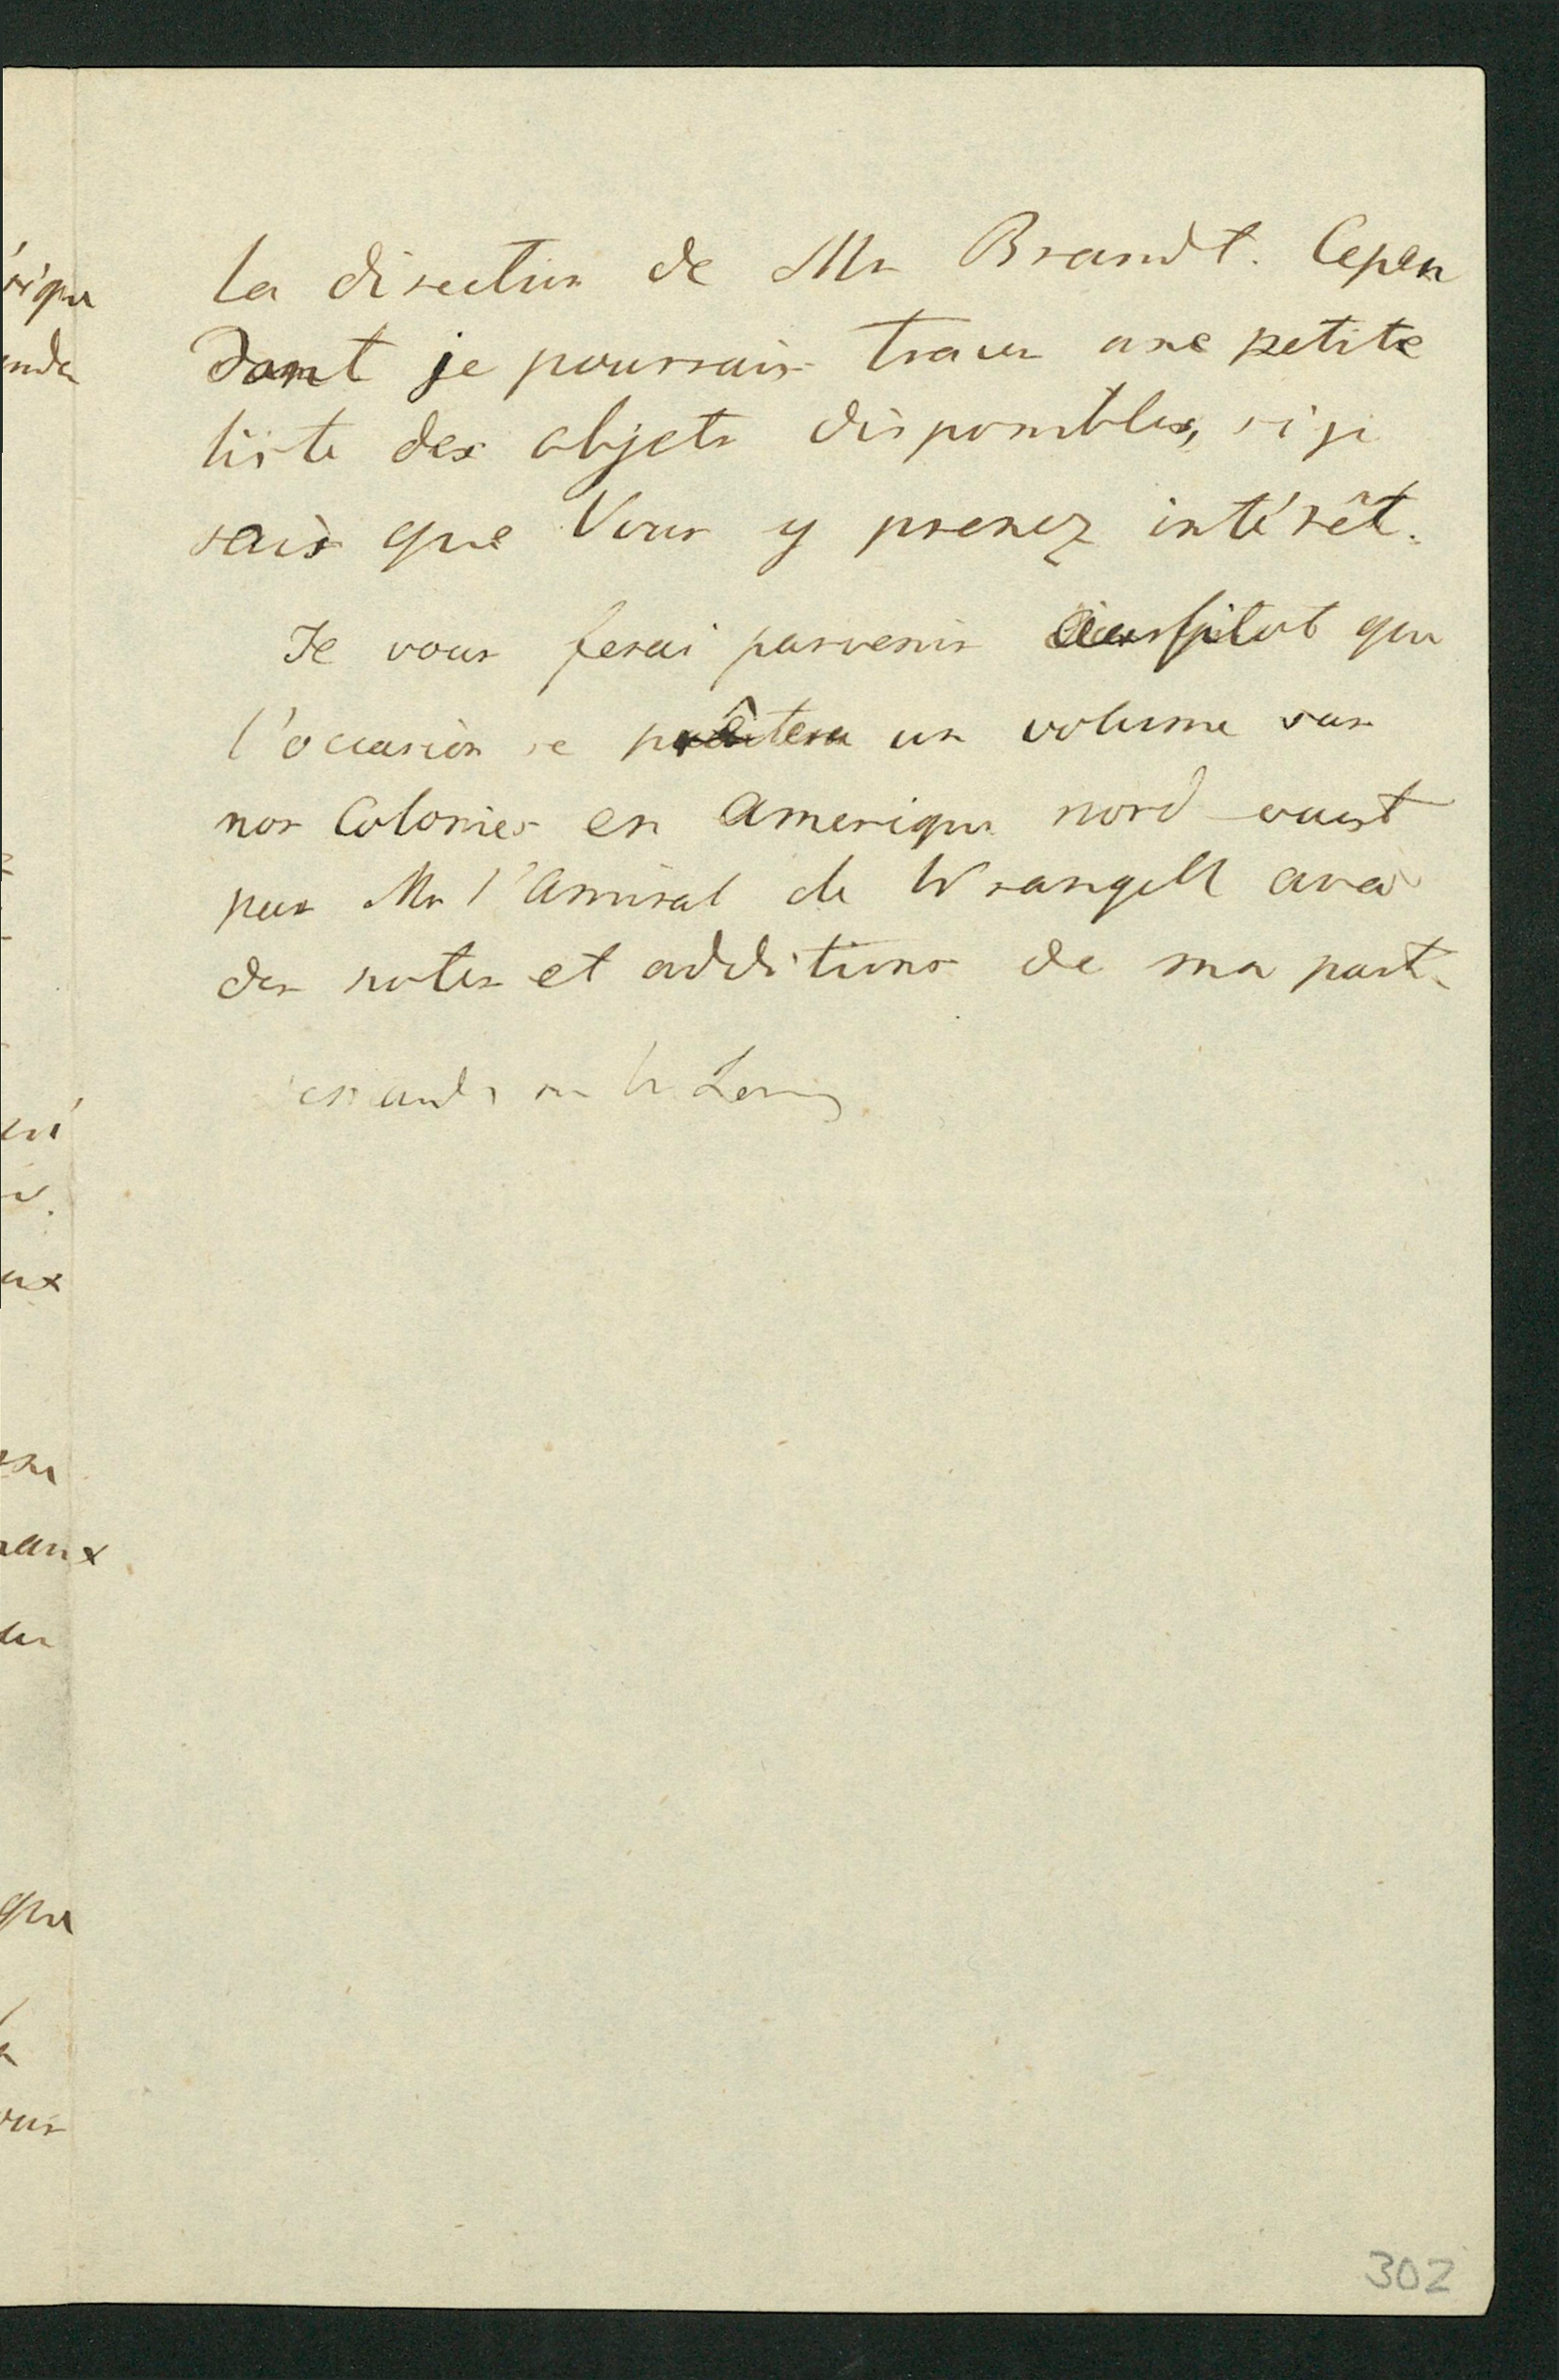 la direction de Mr Brandt. Cepen
dant je pourrais tracer une petite
liste des objets disponibles, si je
sais que Vous y prenez intérêt.
Je vous ferai parvenir aussitot que
l'occasion se prêtera un volume sur
nos Colonies en Amerique nord ouest
par Mr l'Amiral de Wrangell avec
des notes et additions de ma part.
302